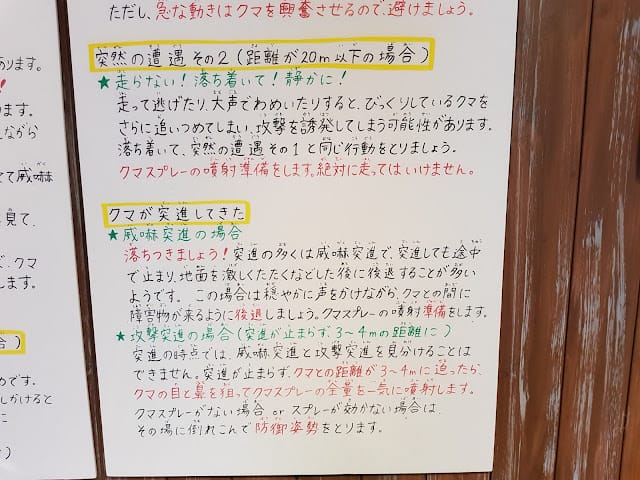 あります。
!
ります。
ながら
て威嚇
見て、
、クマ
します。
合)
めです。
しかけると
に
)
ただし、急な動きはクマを興奮させるので、避けましょう。
突然の遭遇 その2(距離が20m以下の場合)
★走らない!落ち着いて!静かに!
走って逃げたり、大声でわめいたりすると、びっくりしているクマを
さらに追いつめてしまい、攻撃を誘発してしまう可能性があります。
落ち着いて、突然の遭遇 その1と同じ行動をとりましょう。
クマスプレーの噴射準備をします。絶対に走ってはいけません。
クマが突進してきた
★威嚇突進の場合
落ちつきましょう!突進の多くは威嚇突進で、突進しても途中
で止まり、地面を激しくたたくなどした後に後退することが多い
ようです。この場合は穏やかに声をかけながら、クマとの間に
障害物が来るように後退しましょう。クマスプレーの噴射準備をします。
★攻撃突進の場合(突進が止まらず、3~4mの距離に)
突進の時点では、威嚇突進と攻撃突進を見分けることは
できません。突進が止まらず、クマとの距離が3~4mに迫ったら、
クマの目と鼻を狙ってクマスプレーの全量を一気に噴射します。
クマスプレーがない場合、or スプレーが効かない場合は、
その場に倒れこんで防御姿勢をとります。